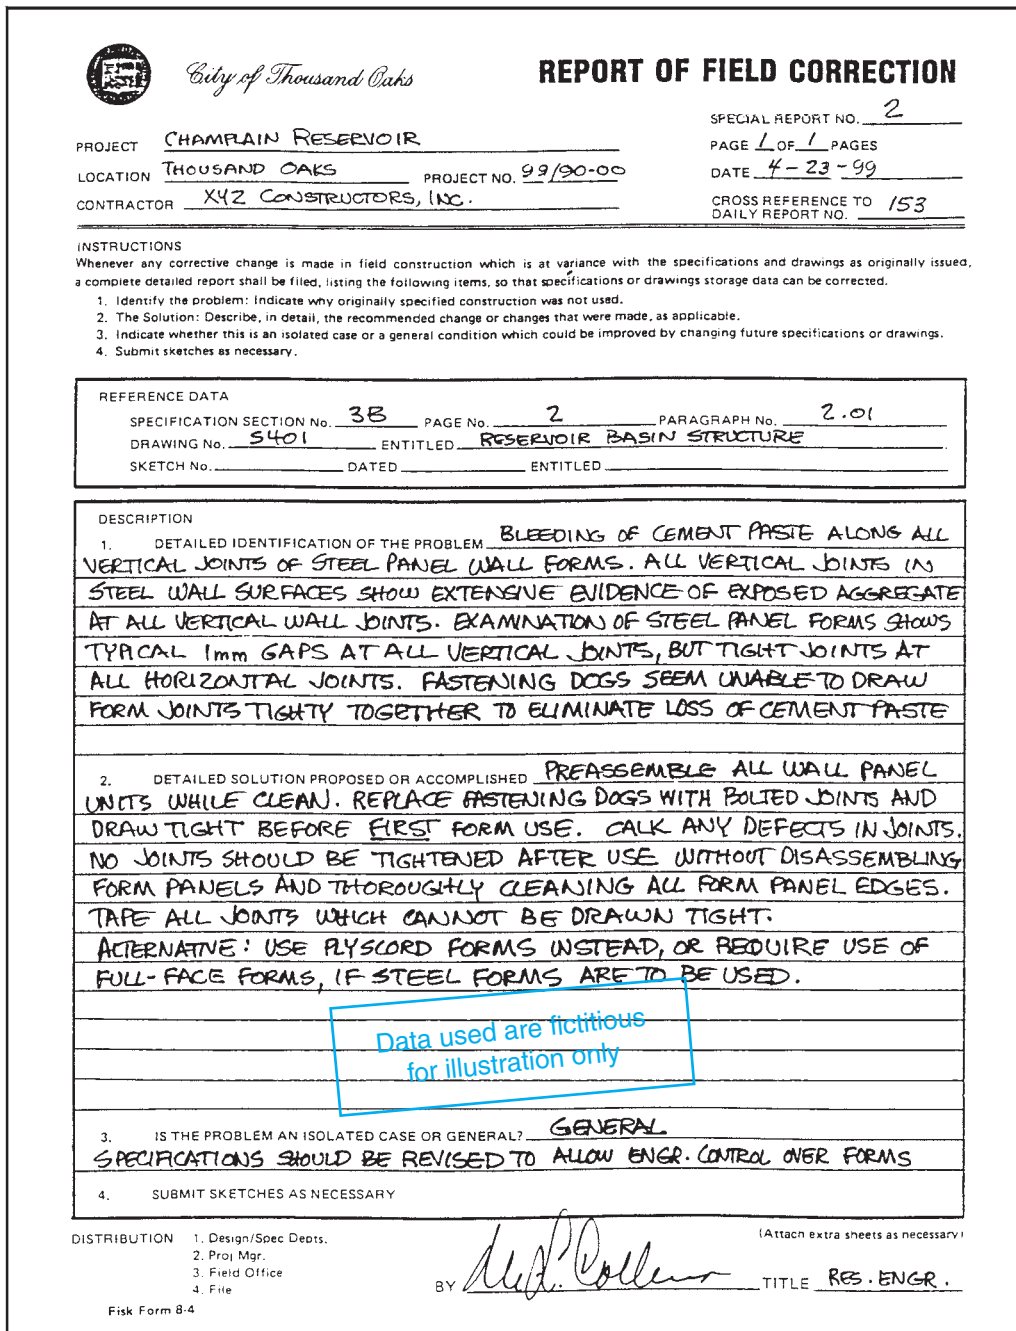 City of Thousand Oaks
REPORT OF FIELD CORRECTION
SPECIAL REPORT NO. 2
PROJECT CHAMPLAIN RESERVOIR
PAGE 1 OF 1 PAGES
LOCATION THOUSAND OAKS PROJECT NO. 99/90-00
DATE 4-23-99
CONTRACTOR XYZ CONSTRUCTORS, INC.
CROSS REFERENCE TO
DAILY REPORT NO. 153
INSTRUCTIONS
Whenever any corrective change is made in field construction which is at variance with the specifications and drawings as originally issued,
a complete detailed report shall be filed, listing the following items, so that specifications or drawings storage data can be corrected.
1. Identify the problem: Indicate why originally specified construction was not used.
2. The Solution: Describe, in detail, the recommended change or changes that were made, as applicable.
3. Indicate whether this is an isolated case or a general condition which could be improved by changing future specifications or drawings.
4. Submit sketches as necessary.
REFERENCE DATA
SPECIFICATION SECTION No. 3B PAGE No. 2 PARAGRAPH No. 2.01
DRAWING No. S401 ENTITLED RESERVOIR BASIN STRUCTURE
SKETCH No. DATED ENTITLED
DESCRIPTION
1. DETAILED IDENTIFICATION OF THE PROBLEM BLEEDING OF CEMENT PASTE ALONG ALL
VERTICAL JOINTS OF STEEL PANEL WALL FORMS. ALL VERTICAL JOINTS IN
STEEL WALL SURFACES SHOW EXTENSIVE EVIDENCE OF EXPOSED AGGREGATE
AT ALL VERTICAL WALL JOINTS. EXAMINATION OF STEEL PANEL FORMS SHOWS
TYPICAL 1mm GAPS AT ALL VERTICAL JOINTS, BUT TIGHT JOINTS AT
ALL HORIZONTAL JOINTS. FASTENING DOGS SEEM UNABLE TO DRAW
FORM JOINTS TIGHTY TOGETHER TO ELIMINATE LOSS OF CEMENT PASTE
2. DETAILED SOLUTION PROPOSED OR ACCOMPLISHED PREASSEMBLE ALL WALL PANEL
UNITS WHILE CLEAN. REPLACE FASTENING DOGS WITH BOLTED JOINTS AND
DRAW TIGHT BEFORE FIRST FORM USE. CALK ANY DEFECTS IN JOINTS.
NO JOINTS SHOULD BE TIGHTENED AFTER USE WITHOUT DISASSEMBLING
FORM PANELS AND THOROUGHLY CLEANING ALL FORM PANEL EDGES.
TAPE ALL JOINTS WHICH CANNOT BE DRAWN TIGHT.
ALTERNATIVE: USE PLYSCORD FORMS INSTEAD, OR REQUIRE USE OF
FULL-FACE FORMS, IF STEEL FORMS ARE TO BE USED.
Data used are fictitious
for illustration only
3. IS THE PROBLEM AN ISOLATED CASE OR GENERAL? GENERAL
SPECIFICATIONS SHOULD BE REVISED TO ALLOW ENGR. CONTROL OVER FORMS
4. SUBMIT SKETCHES AS NECESSARY
DISTRIBUTION 1. Design/Spec Depts.
(Attach extra sheets as necessary)
2. Proj Mgr.
3. Field Office
4. File
BY TITLE RES. ENGR.
Fisk Form 8-4